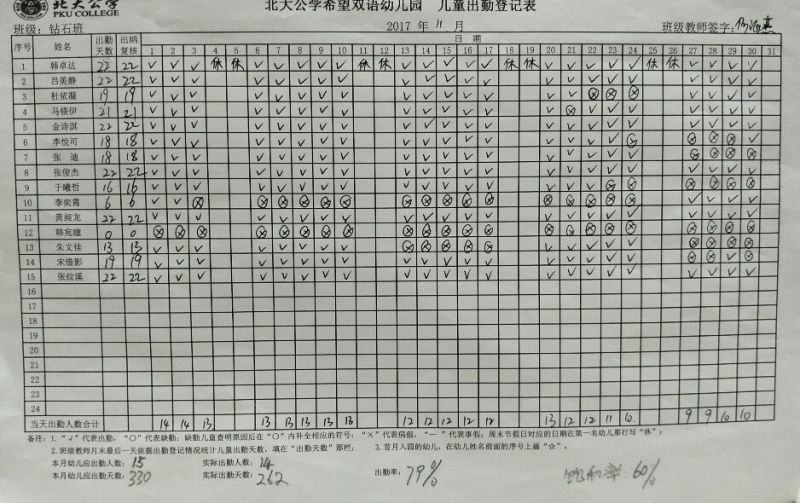 北大公学 PKU COLLEGE
北大公学希望双语幼儿园 儿童出勤登记表
班级：钻石班 2017 年 11 月 班级教师签字：
序号 姓名 出勤天数 出纳复核 日期
1 2 3 4 5 6 7 8 9 10 11 12 13 14 15 16 17 18 19 20 21 22 23 24 25 26 27 28 29 30 31
1 韩卓达 22 22 √ √ √ 休 休 √ √ √ √ √ 休 休 √ √ √ √ √ 休 休 √ √ √ √ √ 休 休 √ √ √ √
2 吕美静 22 22
3 杜依凝 19 19
4 马镁伊 21 21
5 金诗淇 22 22
6 李悦可 18 18
7 张迪 18 18
8 张俊杰 22 22
9 于曦哲 16 16
10 李奕霄 6 6
11 黄昶龙 22 22
12 韩宛瞳 0 0
13 朱文佳 13 13
14 宋借影 19 19
15 张纹溪 22 22
16
17
18
19
20
21
22
23
24
当天出勤人数合计 14 14 13 13 13 13 13 13 12 12 12 12 12 13 12 12 11 10 9 9 10 10
备注：1.“√”代表出勤，“○”代表缺勤；缺勤儿童查明原因后在“○”内补全相应的符号；“×”代表病假，“一”代表事假；周末节假日对应的日期在第一名幼儿那行写“休”；
2.班级教师月末最后一天依据出勤登记情况统计儿童出勤天数，填在“出勤天数”那栏； 3.首月入园的幼儿，在幼儿姓名前面的序号上画“☆”。
本月幼儿应出勤人数：15 实际出勤人数：14 出勤率：79% 饱和率：60%
本月幼儿应出勤天数：330 实际出勤天数：262